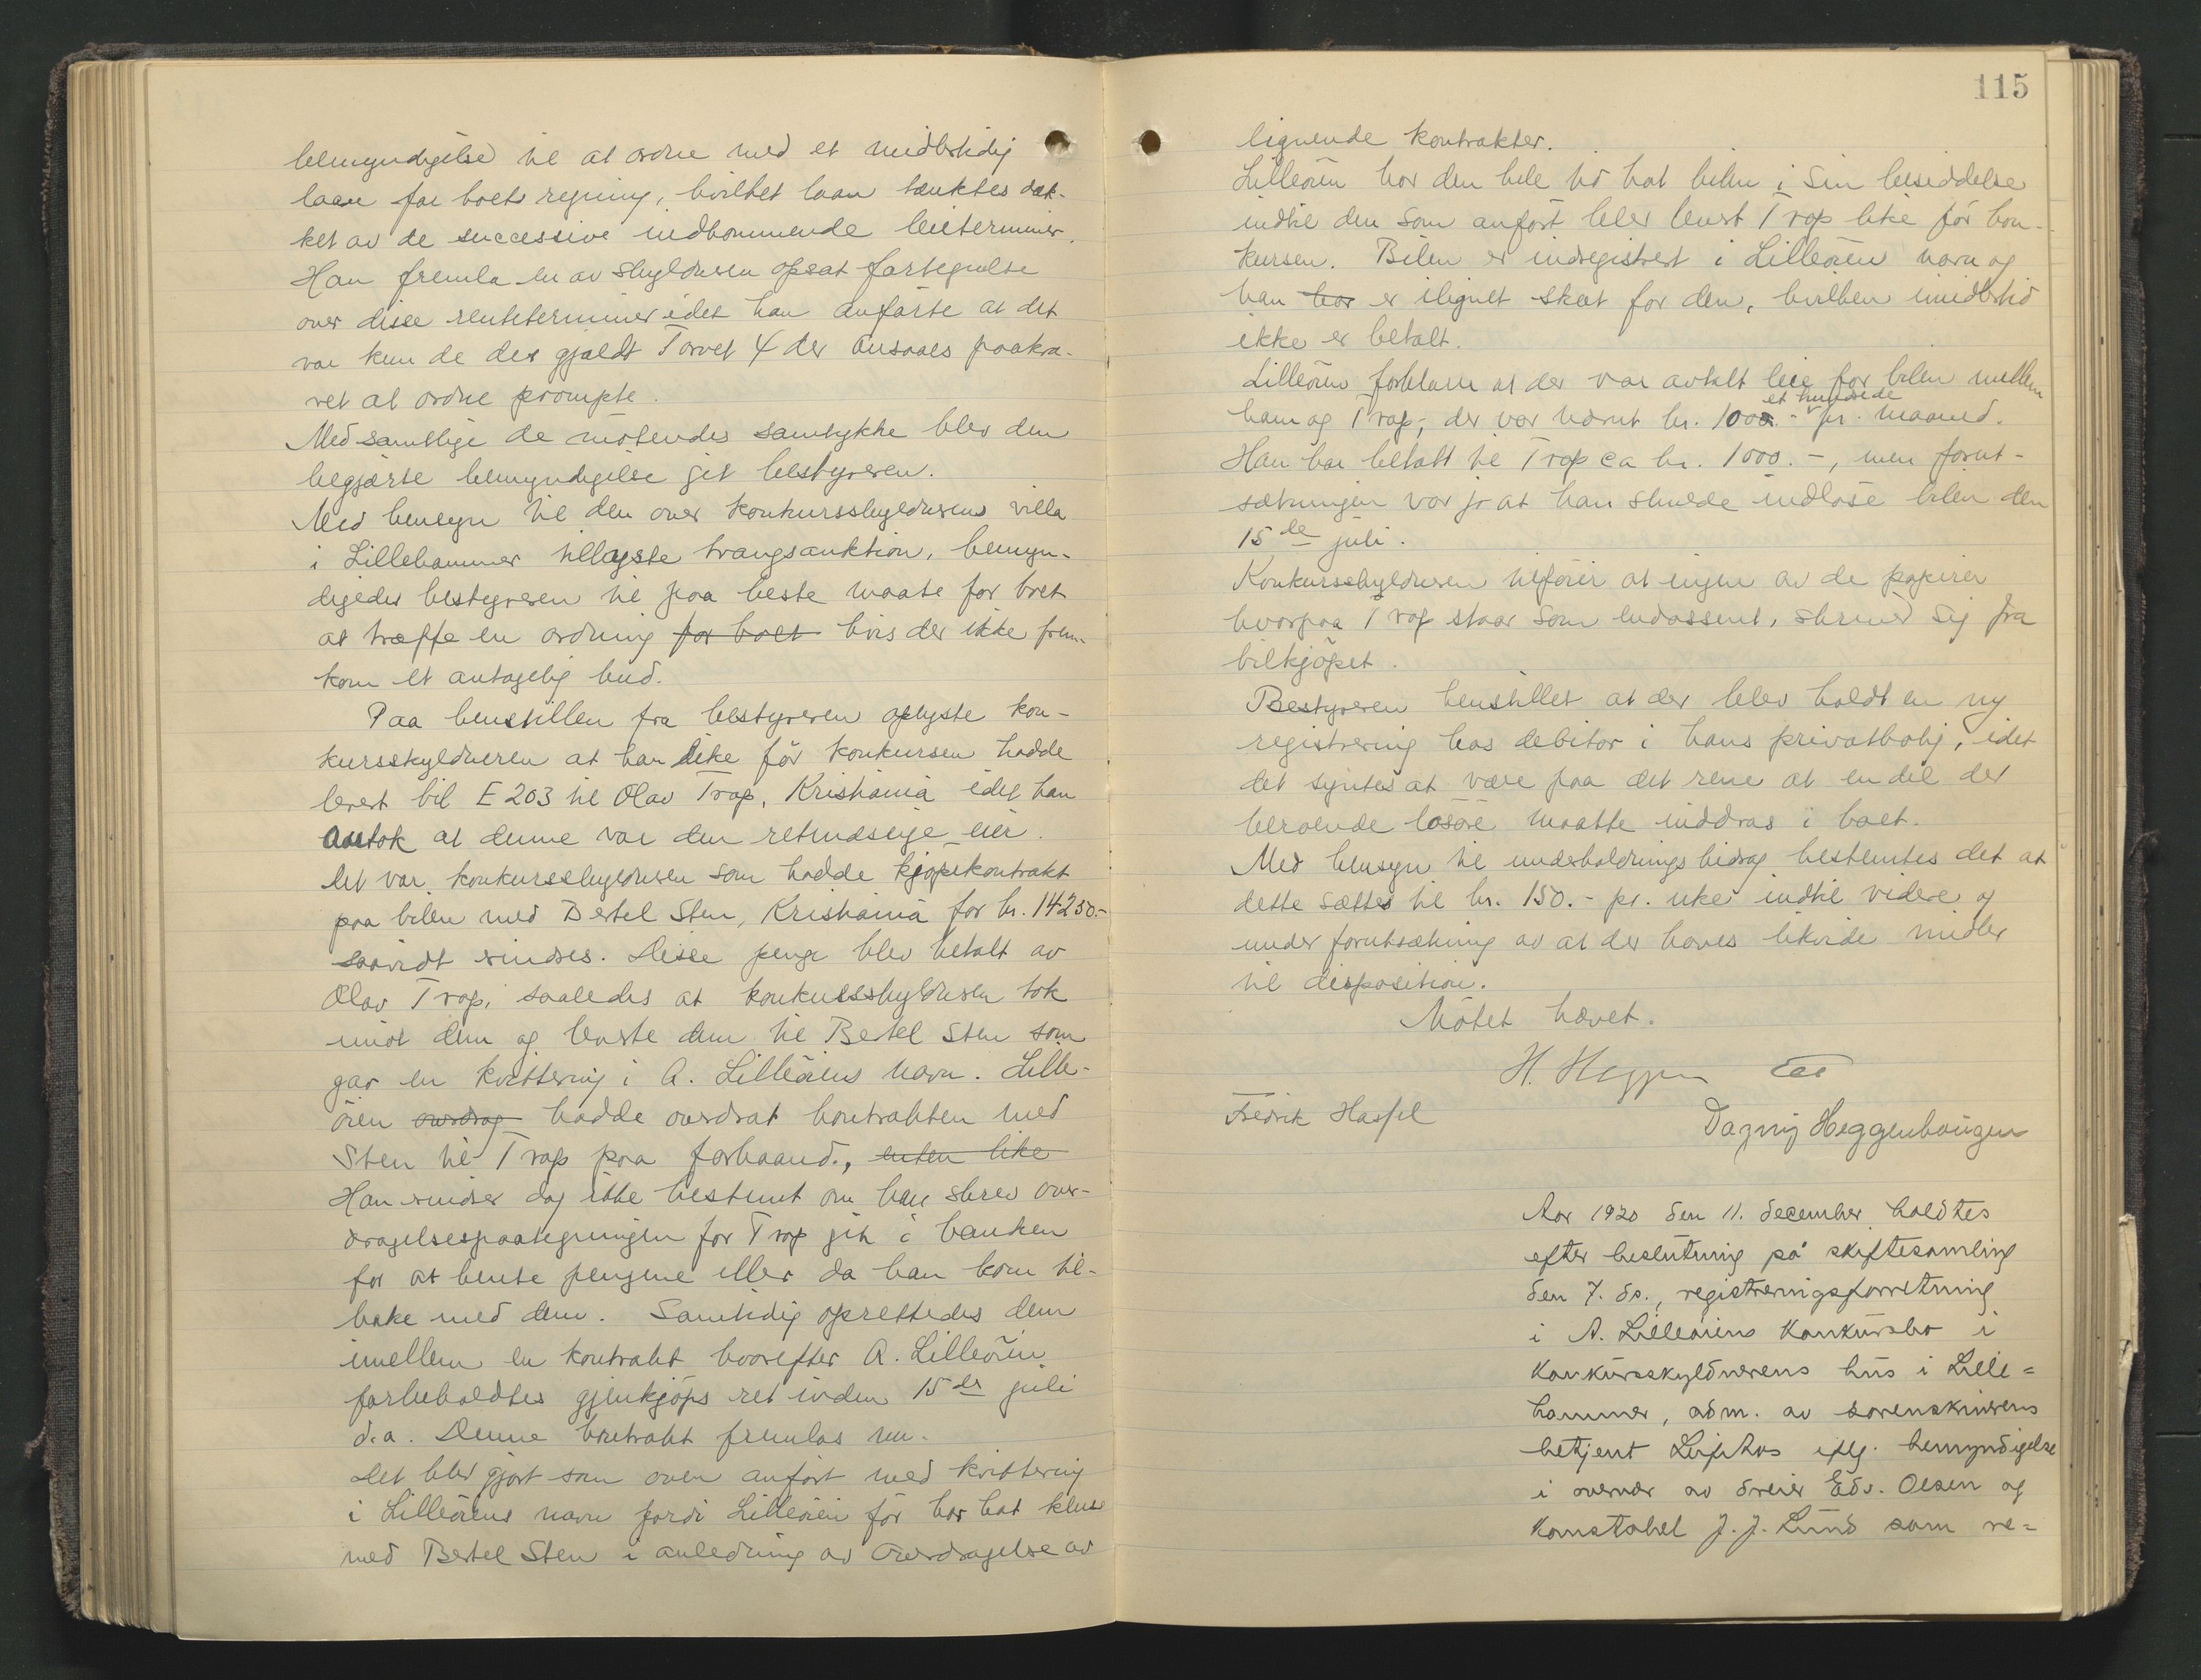 bemyndigelse til at ordne med et midlertidig
laan for boets regning, hvilket laan tænktes dæk-
ket av de successive indkommende leieterminer.
Han fremla en av skyldneren opsat fortegnelse
over disse renteterminer idet han anførte at det
var kun de der gjaldt Torvet 4 der ansaaes paakræ-
vet at ordne prompte.
Med samtlige de møtendes samtykke blev den
begjærte bemyndigelse git bestyreren.
Med hensyn til den over konkursskyldnerens villa
i Lillehammer tillyste tvangsauktion, bemyn-
digedes bestyreren til paa beste maate for boet
at træffe en ordning for boet hvis der ikke frem-
kom et antagelig bud.
Paa henstillen fra bestyreren oplyste kon-
kursskyldneren at han like før konkursen hadde
levert bil E 203 til Olav Trap, Kristiania idet han
antok at denne var den retmæssige eier.
Det var konkursskyldneren som hadde kjøpekontrakt
paa bilen med Bertel Sten, Kristiania for kr. 14250.-
saavidt mindes. Disse penge blev betalt av
Olav Trap, saaledes at konkursskyldneren tok
imot dem og leverte dem til Bertel Sten som
gav en kvittering i A. Lilleøiens navn. Lille-
øien overdrog hadde overdrat kontrakten med
Sten til Trap paa forhaand., enten like
Han mindes dog ikke bestemt om han skrev over-
dragelsespaategningen før Trap gik i banken
for at hente pengene eller da han kom til-
bake med dem. Samtidig oprettedes dem
imellem en kontrakt hvorefter A. Lilleøien
forbeholdtes gjenkjøps ret inden 15de juli
d.a. Denne kontrakt fremlas nu.
Det blev gjort som oven anført med kvittering
i Lilleøiens navn fordi Lilleøien før har hat kluss
med Bertel Sten i anledning av overdragelse av
115
lignende kontrakter.
Lilleøien har den hele tid hat bilen i sin besiddelse
indtil den som anført blev levert Trap like før kon-
kursen. Bilen er indregistrert i Lilleøiens navn og
han har er ilignet skat for den, hvilken imidlertid
ikke er betalt.
Lilleøien forklarer at der var avtalt leie for bilen mellem
et hundrede
ham og Trap, der var nævnt kr. 100.- pr. maaned.
Han har betalt til Trap ca kr. 1000.-, men forut-
sætningen var jo at han skulde indløse bilen den
15de juli.
Konkursskyldneren tilføier at ingen av de papirer
hvorpaa Trap staar som endossent, skriver sig fra
bilkjøpet.
Bestyreren henstillet at der blev holdt en ny
registrering hos debitor i hans privatbolig, idet
det syntes at være paa det rene at en del der
beroende løsøre maatte inddras i boet.
Med hensyn til underholdnings bidrag bestemtes det at
dette sættes til kr. 150.- pr. uke indtil videre og
under forutsætning av at der haves likvide midler
til disposition.
Møtet hævet.
H. Heggen
Fredrik Hassel
Dagny Heggenhougen
Aar 1920 den 11. december holdtes
efter beslutning på skiftesamling
den 7. ds., registreringsforretning
i A. Lilleøiens konkursbo i
konkursskyldnerens hus i Lille=
hammer, adm. av sorenskriverens
betjent iflg. bemyndigelse
i overvær av dreier Edv. Olsen og
konstabel J. J. Lund som re=